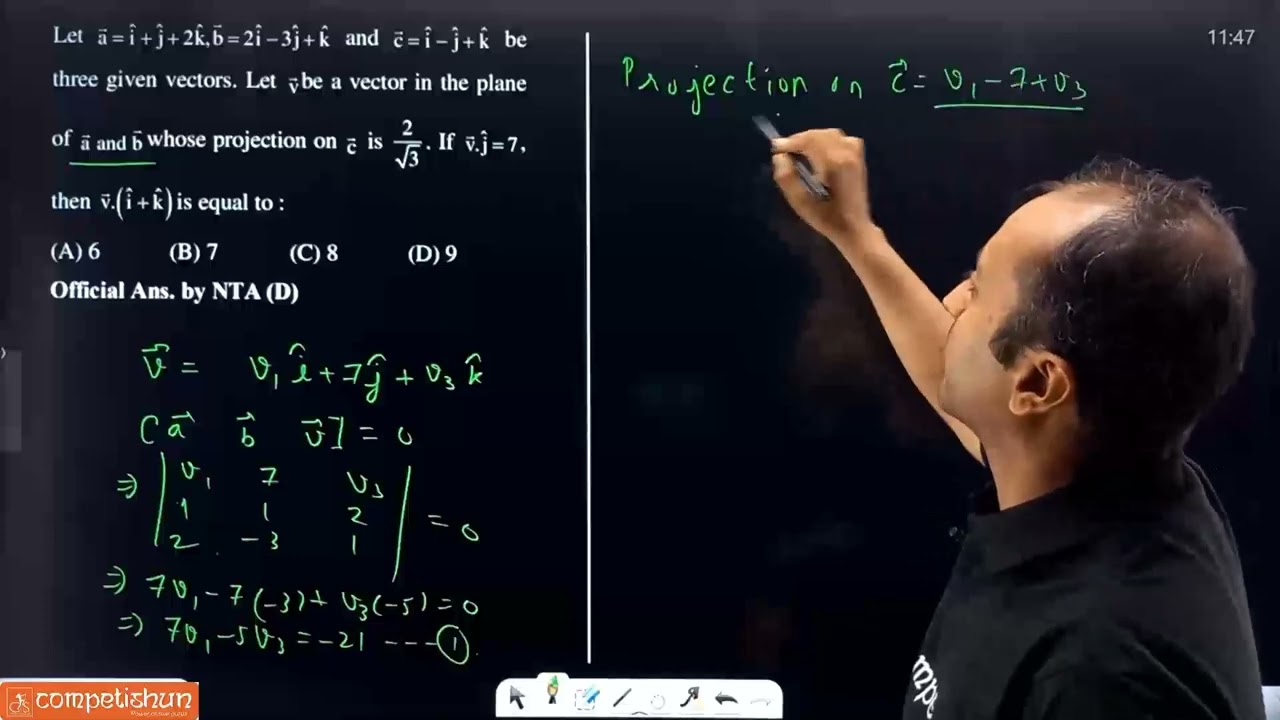 Let a⃗ = î + ĵ + 2k̂, b⃗ = 2î − 3ĵ + k̂ and c⃗ = î − ĵ + k̂ be
three given vectors. Let v⃗ be a vector in the plane
of a⃗ and b⃗ whose projection on c⃗ is 2/√3. If v⃗.ĵ = 7,
then v⃗.(î + k̂) is equal to :
(A) 6 (B) 7 (C) 8 (D) 9
Official Ans. by NTA (D)
v⃗ = v₁î + 7ĵ + v₃k̂
[a⃗ b⃗ v⃗] = 0
⇒ | v₁ 7 v₃
1 1 2
2 −3 1 | = 0
⇒ 7v₁ − 7(−3) + v₃(−5) = 0
⇒ 7v₁ − 5v₃ = −21 ---①.
11:47
Projection on c⃗ = v₁ − 7 + v₃
competishun